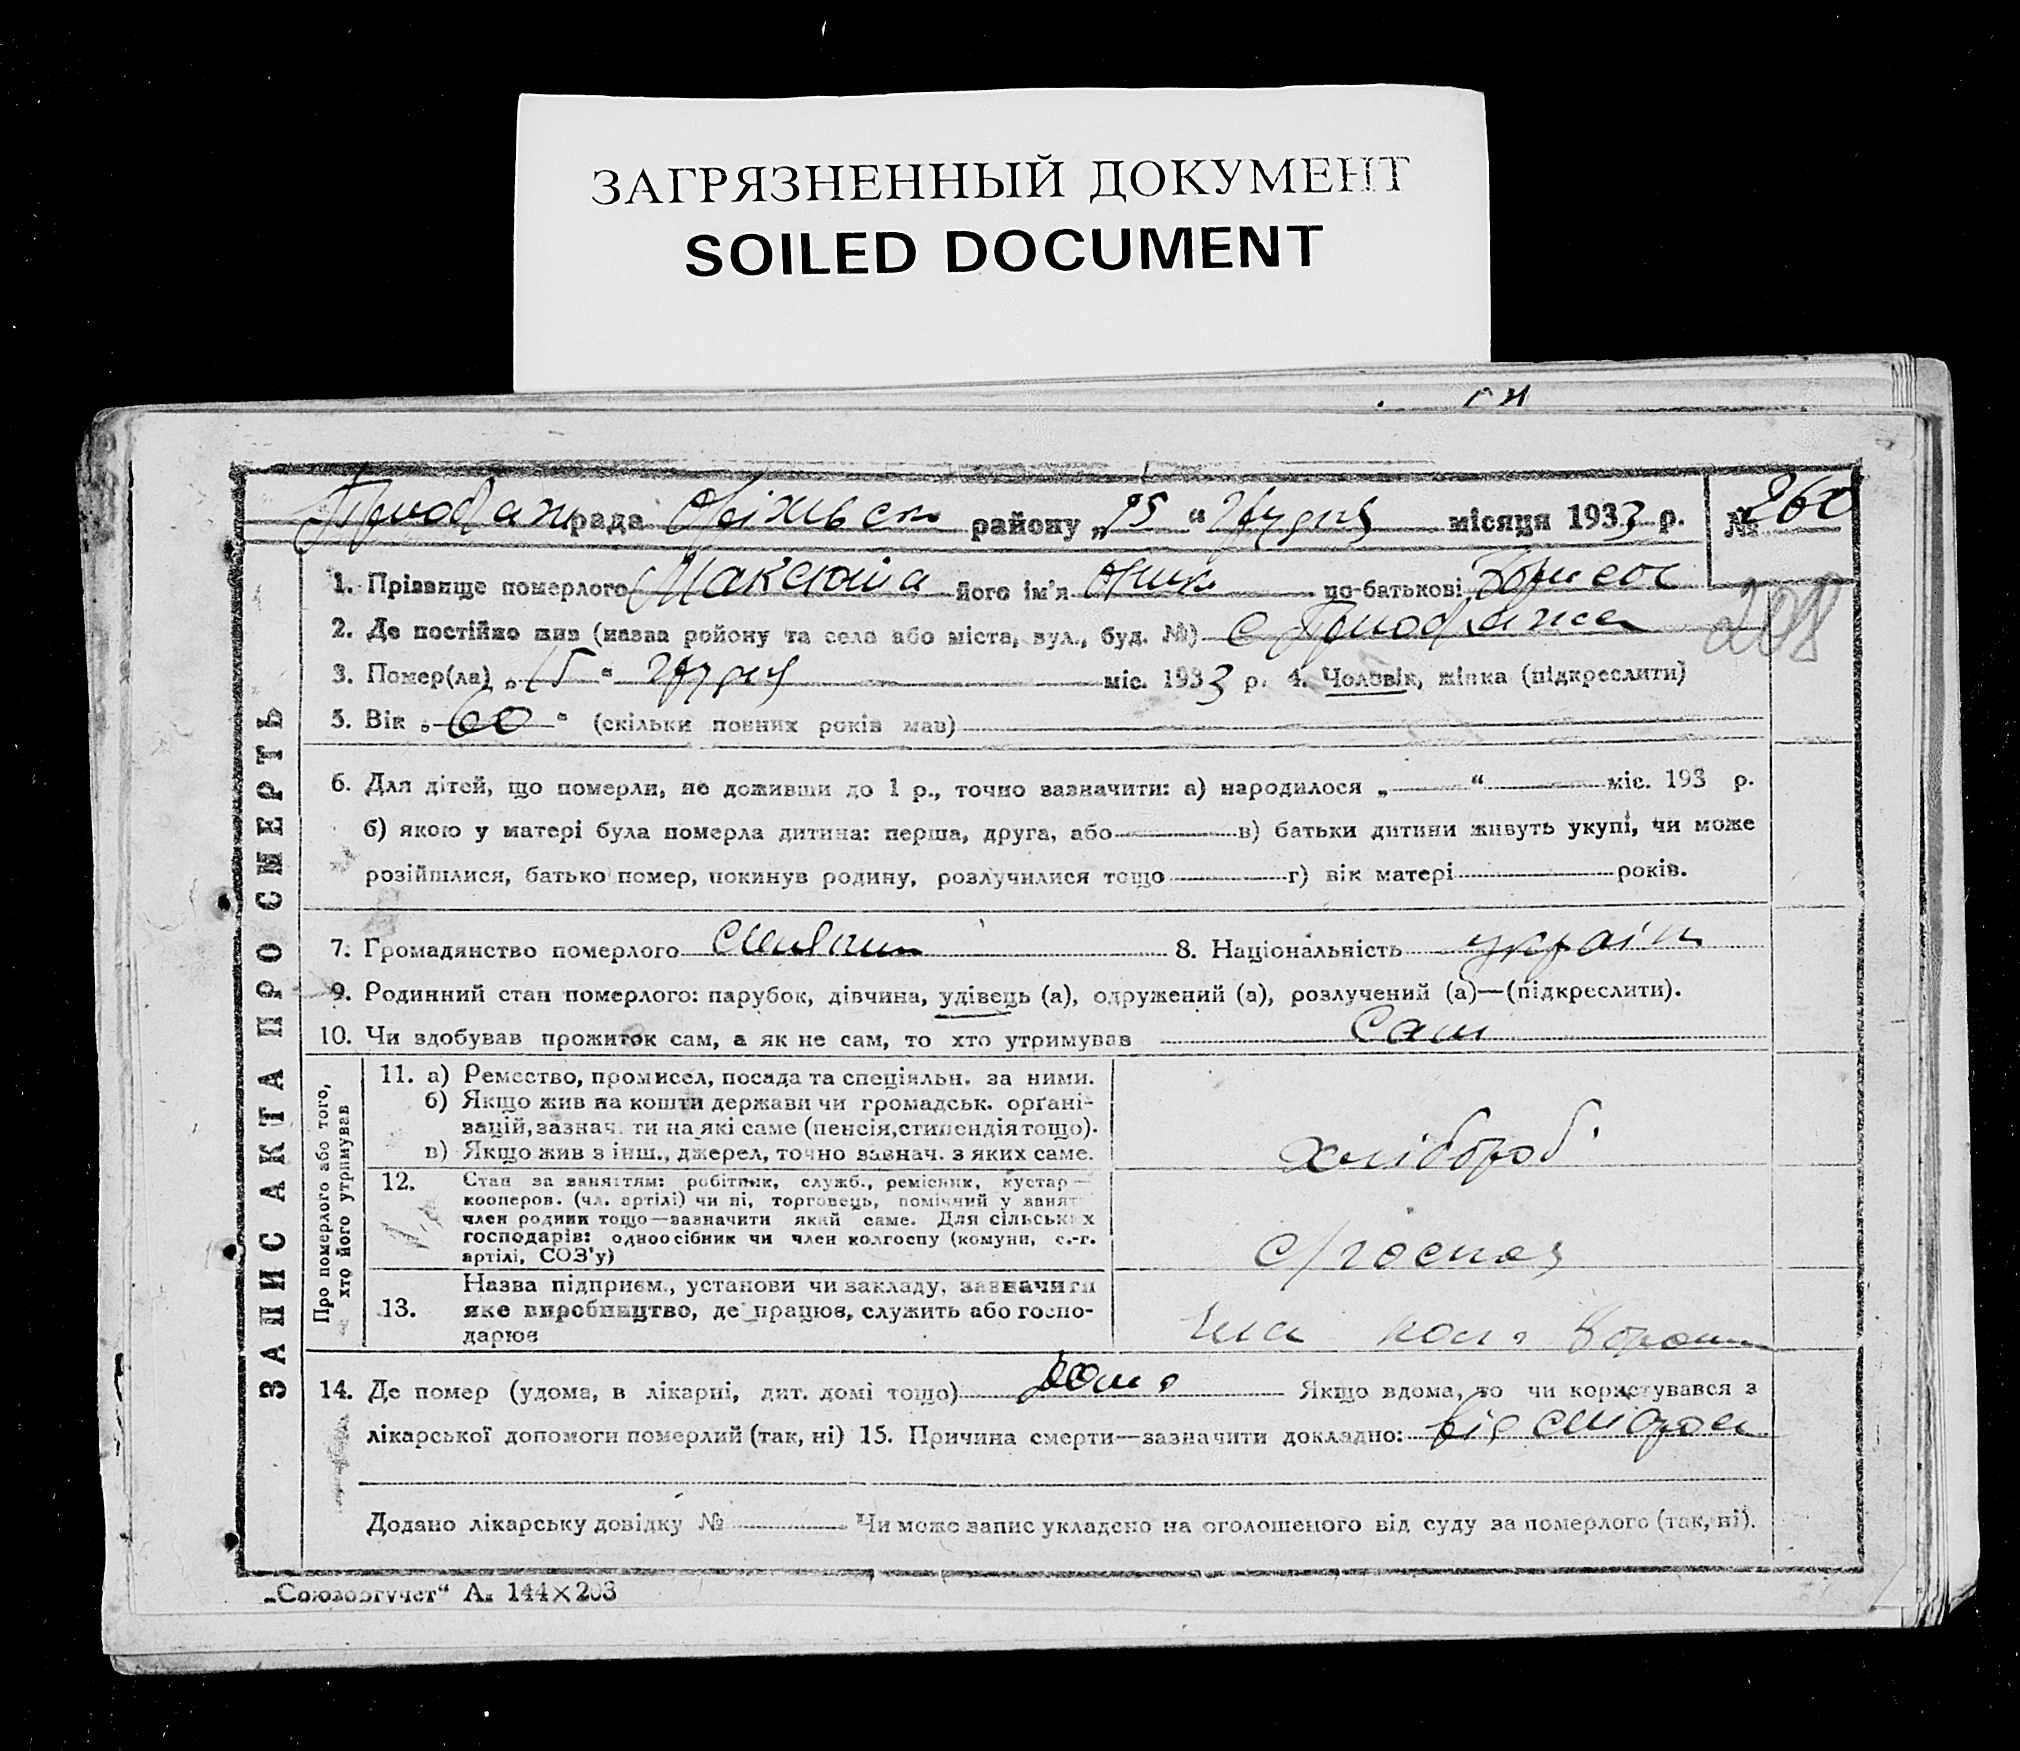 ЗАГРЯЗНЕННЫЙ ДОКУМЕНТ
SOILED DOCUMENT
рада району „15 “ грудня місяця 1933 р. № 260
1. Прізвище померлого його ім'я по-батькові Борисов
208
2. Де постійно жив (назва ройону та села або міста, вул., буд. №) с
3. Помер(ла) „15“ грудня міс. 1933 р. 4. Чоловік, жінка (підкреслити)
5. Вік „60“ (скільки повних років мав)
6. Для дітей, що померли, не доживши до 1 р., точно зазначити: а) народилося „ “ міс. 193 р.
б) якою у матері була померла дитина: перша, друга, або в) батьки дитини живуть укупі, чи може
розійшлися, батько помер, покинув родину, розлучилися тощо г) вік матері років.
7. Громадянство померлого 8. Національність україн
9. Родинний стан померлого: парубок, дівчина, удівець (а), одружений (а), розлучений (а)—(підкреслити).
10. Чи здобував прожиток сам, а як не сам, то хто утримував Сам
ЗАПИС АКТА ПРО СМЕРТЬ
Про померлого або того, хто його утримував
11. а) Ремество, промисел, посада та спеціяльн. за ними.
б) Якщо жив на кошти держави чи громадськ. орґані-
зацій, зазнач. ти на які саме (пенсія, стипендія тощо).
в) Якщо жив з інш., джерел, точно зазнач. з яких саме.
хлібороб
12. Стан за заняттям: робітник, служб., ремісник, кустар—
кооперов. (чл. артілі) чи ні, торговець, помічний у занят
член родини тощо—зазначити який саме. Для сільських
господарів: одноосібник чи член колгоспу (комуни, с.-г.
артілі, СОЗ'у)
13. Назва підприєм., установи чи закладу, зазначити
яке виробництво, де працює, служить або госпо-
дарює
14. Де помер (удома, в лікарні, дит. домі тощо) дома Якщо вдома, то чи користувався з
лікарської допомоги померлий (так, ні) 15. Причина смерти—зазначити докладно: від
Додано лікарську довідку № Чи може запис укладено на оголошеного від суду за померлого (так, ні).
„Союзоргучет“ А₄ 144×203